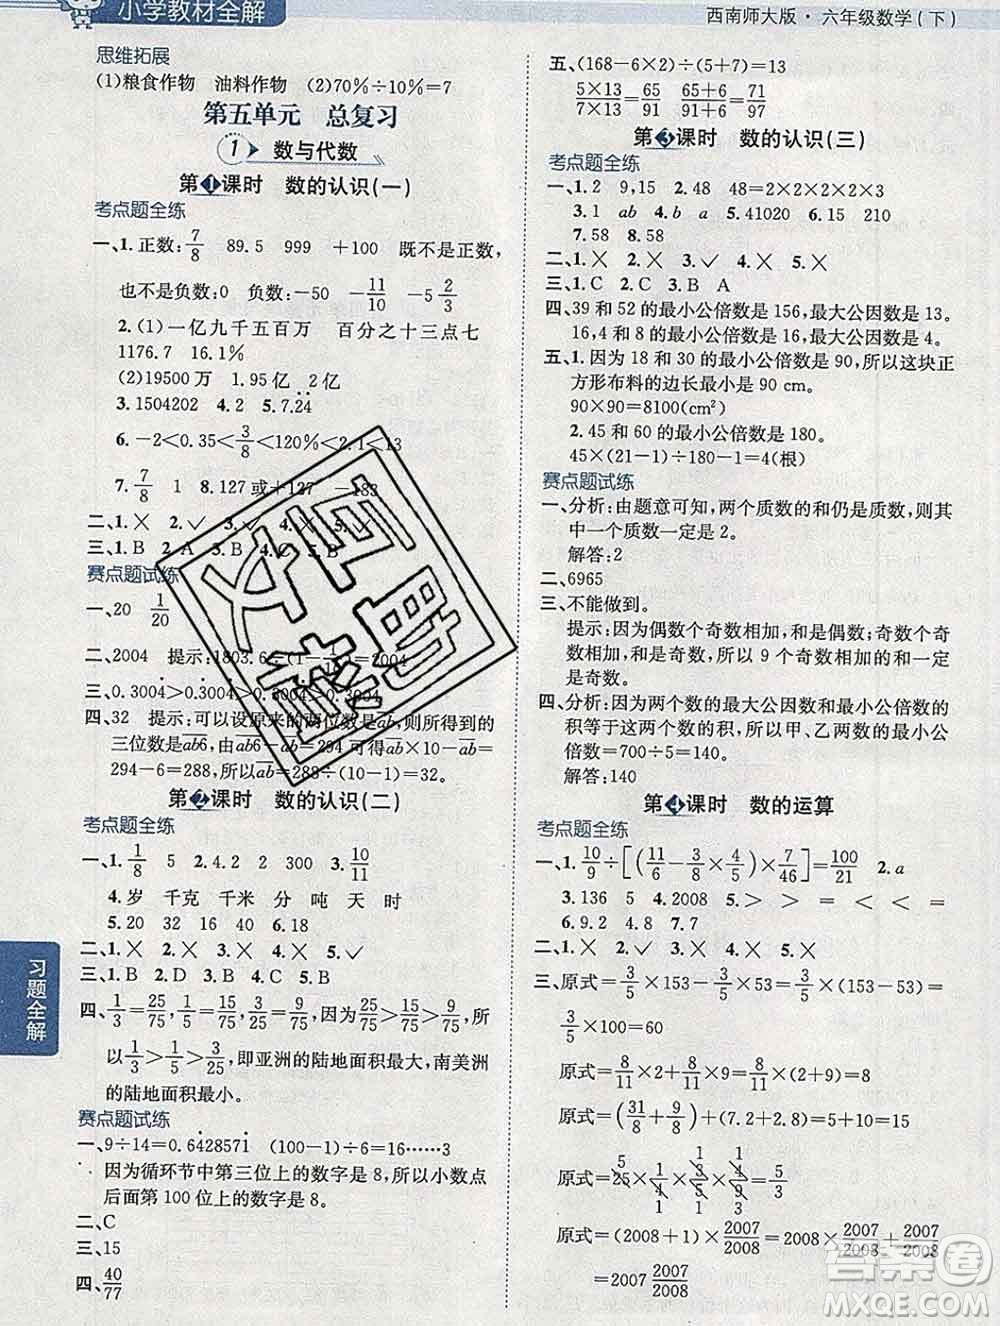 小学教材全解
西南师大版·六年级数学(下)
思维拓展
(1)粮食作物 油料作物 (2)70%÷10%=7
第五单元 总复习
1 数与代数
第1课时 数的认识(一)
考点题全练
一、1.正数:7/8 89.5 999 +100 既不是正数,
也不是负数:0 负数:-50 -11/10 -5 2/3
2.(1)一亿九千五百万 百分之十三点七
1176万 16.1%
(2)19500万 1.95亿 2亿
3.1504202 4.2 5.7.2̇4̇
6.-2<0.35<3/8<120%<2.1<13
7.7/8 1 8.127或+127 -183
二、1.✕ 2.✓ 3.✓ 4.✕ 5.✕
三、1.B 2.A 3.B 4.C 5.B
赛点题试练
一、20 1/20
二、2004 提示:1803.6÷(1-1/10)=2004
三、0.3004
四、32 提示:可以设原来的两位数是ab,所得到的
三位数是ab6,由ab6-ab=294可得ab×10-ab=
294-6=288,所以ab=288÷(10-1)=32。
第2课时 数的认识(二)
考点题全练
一、1.1/8 5 2.4.2 2 300 3.10/11
4.岁 千克 千米 分 吨 天 时
5.20 32 16 40 6.18
二、1.✕ 2.✕ 3.✕ 4.✕ 5.✓
三、1.B 2.D 3.B 4.D
四、1/3=25/75,1/5=15/75,3/25=9/75,因为25/75>15/75>9/75,所
以1/3>1/5>3/25,即亚洲的陆地面积最大,南美洲
的陆地面积最小。
赛点题试练
一、9÷14=0.64̇28571̇ (100-1)÷6=16……3
因为循环节中第三位上的数字是8,所以小数点
后面第100位上的数字是8。
二、C
三、15
四、40/77
习题全解
五、(168-6×2)÷(5+7)=13
5×13/7×13=65/91 65+6/91+6=71/97
第3课时 数的认识(三)
考点题全练
一、1.2 9,15 2.48 48=2×2×2×2×3
3.1 ab 4.b a 5.41020 6.15 210
7.58 8.58
二、1.✕ 2.✕ 3.✓ 4.✕ 5.✕
三、1.C 2.C 3.B 4.B A
四、39和52的最小公倍数是156,最大公因数是13。
16,4和8的最小公倍数是16,最大公因数是4。
五、1.因为18和30的最小公倍数是90,所以这块正
方形布料的边长最小是90 cm。
90×90=8100(cm²)
2.45和60的最小公倍数是180。
45×(21-1)÷180-1=4(根)
赛点题试练
一、分析:由题意可知,两个质数的和仍是质数,则其
中一个质数一定是2。
解答:2
二、6965
三、不能做到。
提示:因为偶数个奇数相加,和是偶数,奇数个奇
数相加,和是奇数,所以9个奇数相加,和一定
是奇数。
四、分析:因为两个数的最大公因数和最小公倍数的
积等于这两个数的积,所以甲、乙两数的最小公
倍数=700÷5=140。
解答:140
第4课时 数的运算
考点题全练
一、1.10/9÷[(11/6-3/8×4/5)×7/46]=100/21 2.a
3.136 5 4.2008 5.> > > < =
6.9.2 4.8 7.7
二、1.✕ 2.✕ 3.✕ 4.✕ 5.✓
三、原式=3/5×153-53×3/5=3/5×(153-53)=
3/5×100=60
原式=8/11×2×1/8×11/2=8/11×1/8×2×11/2=1
原式=(31/9+5/9)+(7.2+2.8)=4+10=15
原式=25×1/15×1/4×3/4×4/9=5/3
原式=(2008+1)×2007/2008=2008×2007/2008+2007/2008
=2007 2007/2008
答案圈
MXQE.COM